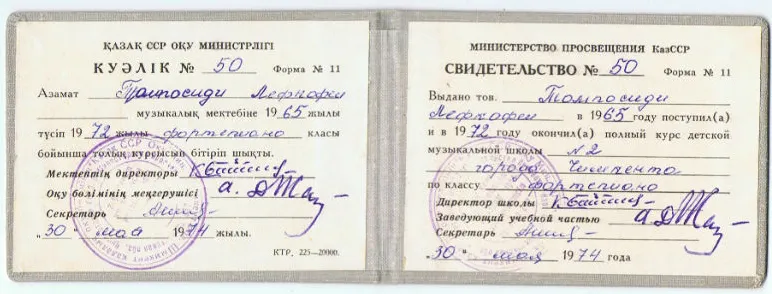 ҚАЗАҚ ССР ОҚУ МИНИСТРЛІГІ
КУӘЛІК № 50 Форма № 11
Азамат Томпосиди Лефкофеи
музыкалық мектебіне 1965 жылы
түсіп 1972 жылы фортепиано класы
бойынша толық курсысын бітіріп шықты.
Мектептің директоры
Оқу бөлімінің меңгерушісі
Секретарь
„30" мая 1974 жылы.
КТР, 225—20000.
МИНИСТЕРСТВО ПРОСВЕЩЕНИЯ КазССР
СВИДЕТЕЛЬСТВО № 50 Форма № 11
Выдано тов. Томпосиди
Лефкофеи в 1965 году поступил(а)
и в 1972 году окончил(а) полный курс детской
музыкальной школы №2
города Чимкента
по классу фортепиано
Директор школы
Заведующий учебной частью
Секретарь
„30" мая 1974 года